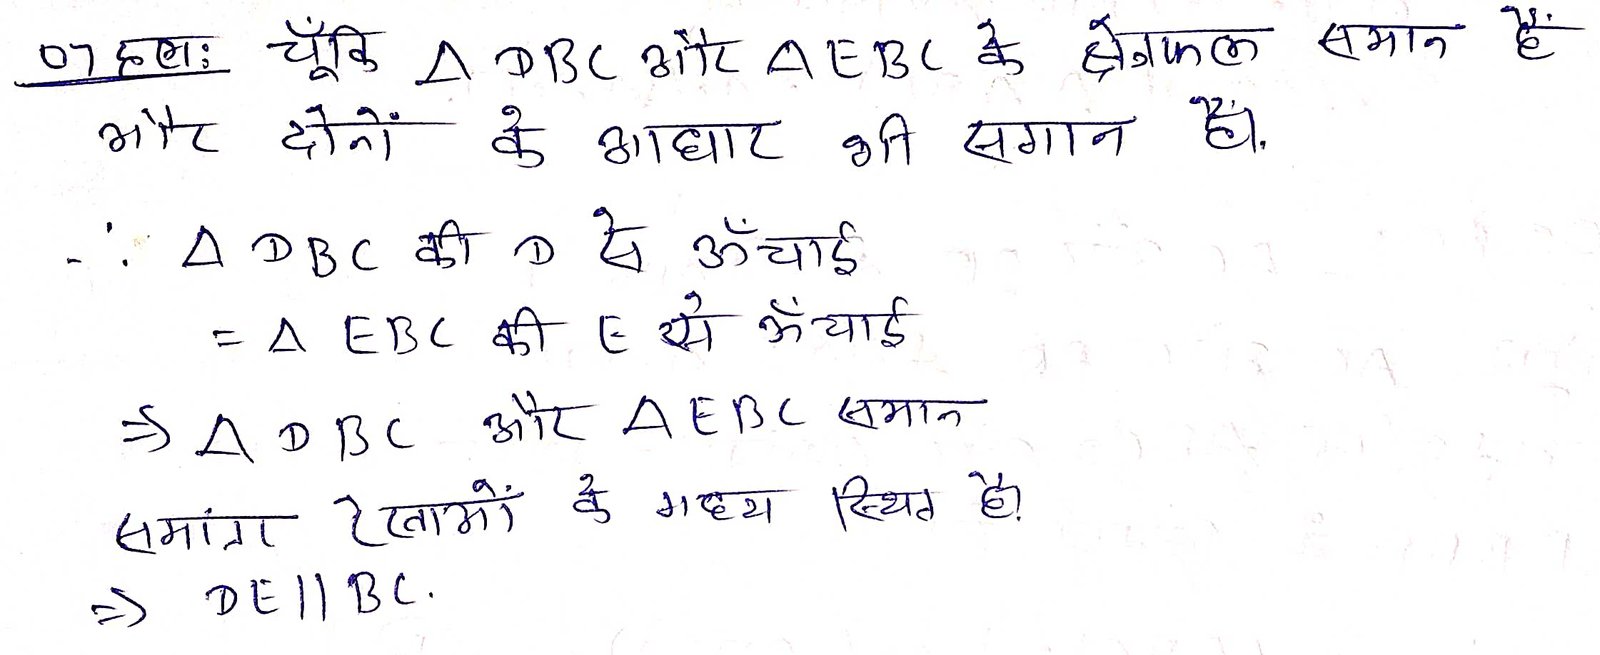 07 हल: चूँकि Δ DBC और Δ EBC के क्षेत्रफल समान हैं
और दोनों के आधार भी समान हैं।
∴ Δ DBC की D से ऊँचाई
= Δ EBC की E से ऊँचाई
⇒ Δ DBC और Δ EBC समान
समांतर रेखाओं के मध्य स्थित हैं।
⇒ DE || BC.